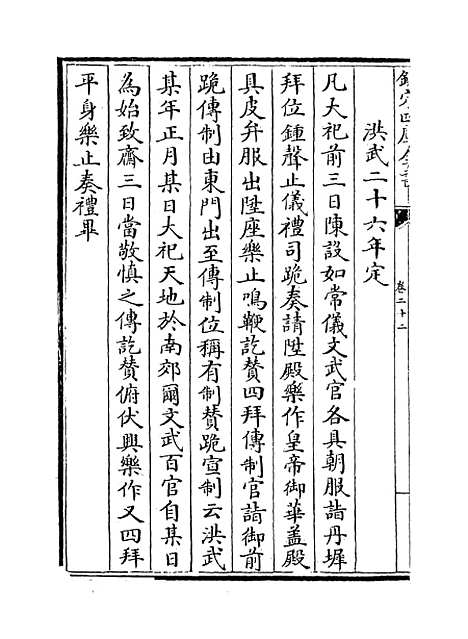 欽定四庫全書
卷二十二
洪武二十六年定
凡大祀前三日陳設如常儀文武官各具朝服詣丹墀
拜位鍾聲止儀禮司跪奏請陞殿樂作皇帝御華蓋殿
具皮弁服出陞座樂止鳴鞭訖贊四拜傳制官詣御前
跪傳制由東門出至傳制位稱有制贊跪宣制云洪武
某年正月某日大祀天地於南郊爾文武百官自某日
為始致齋三日當敬慎之傳訖贊俯伏興樂作又四拜
平身樂止奏禮畢